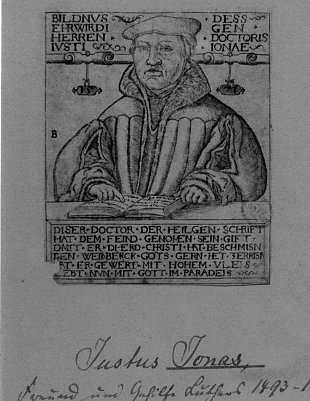 BILDNVS DESS
EHRWIRDI GEN
HERREN DOCTORIS
IVSTI IONAE
B
DISER · DOCTOR · DER · HEILGEN · SCHRIFT
HAT · DEM · FEIND · GENOMEN · SEIN · GIFT
DMIT · ER · D HERD · CHRISTI · HAT · BESCHMISN
DEN · WEINBERCK · GOTS · GERN · HET · ZERRISN
HAT · ER · GEWERT · MIT · HOHEM · VLEIS
LEBT · NVN · MIT · GOTT · IM · PARADEIS
Justus Jonas,
Freund und Gehilfe Luthers 1493-1